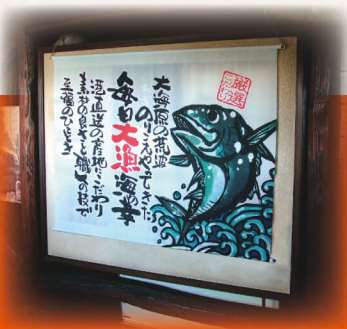 大海原の荒波
のりこえやってきた
毎日大漁海の幸
港直送の産地こだわり
素材の良さと職人の技で
至福のひととき
厳選